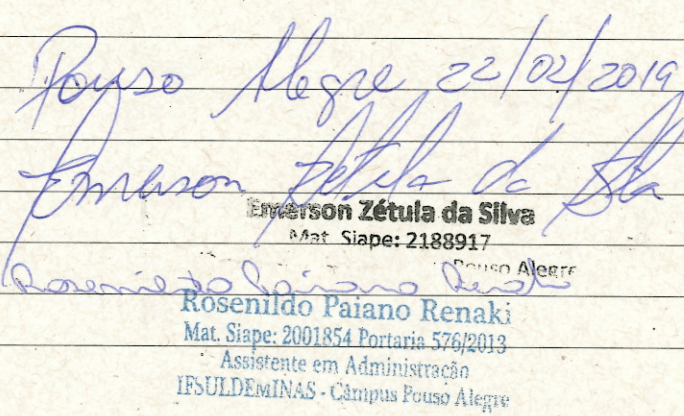 Pouso Alegre 22/02/2019
Emerson Zétula da Silva
Emerson Zétula da Silva
Mat. Siape: 2188917
Pouso Alegre
Rosenildo Paiano Renaki
Rosenildo Paiano Renaki
Mat. Siape: 2001854 Portaria 576/2013
Assistente em Administração
IFSULDEMINAS - Câmpus Pouso Alegre